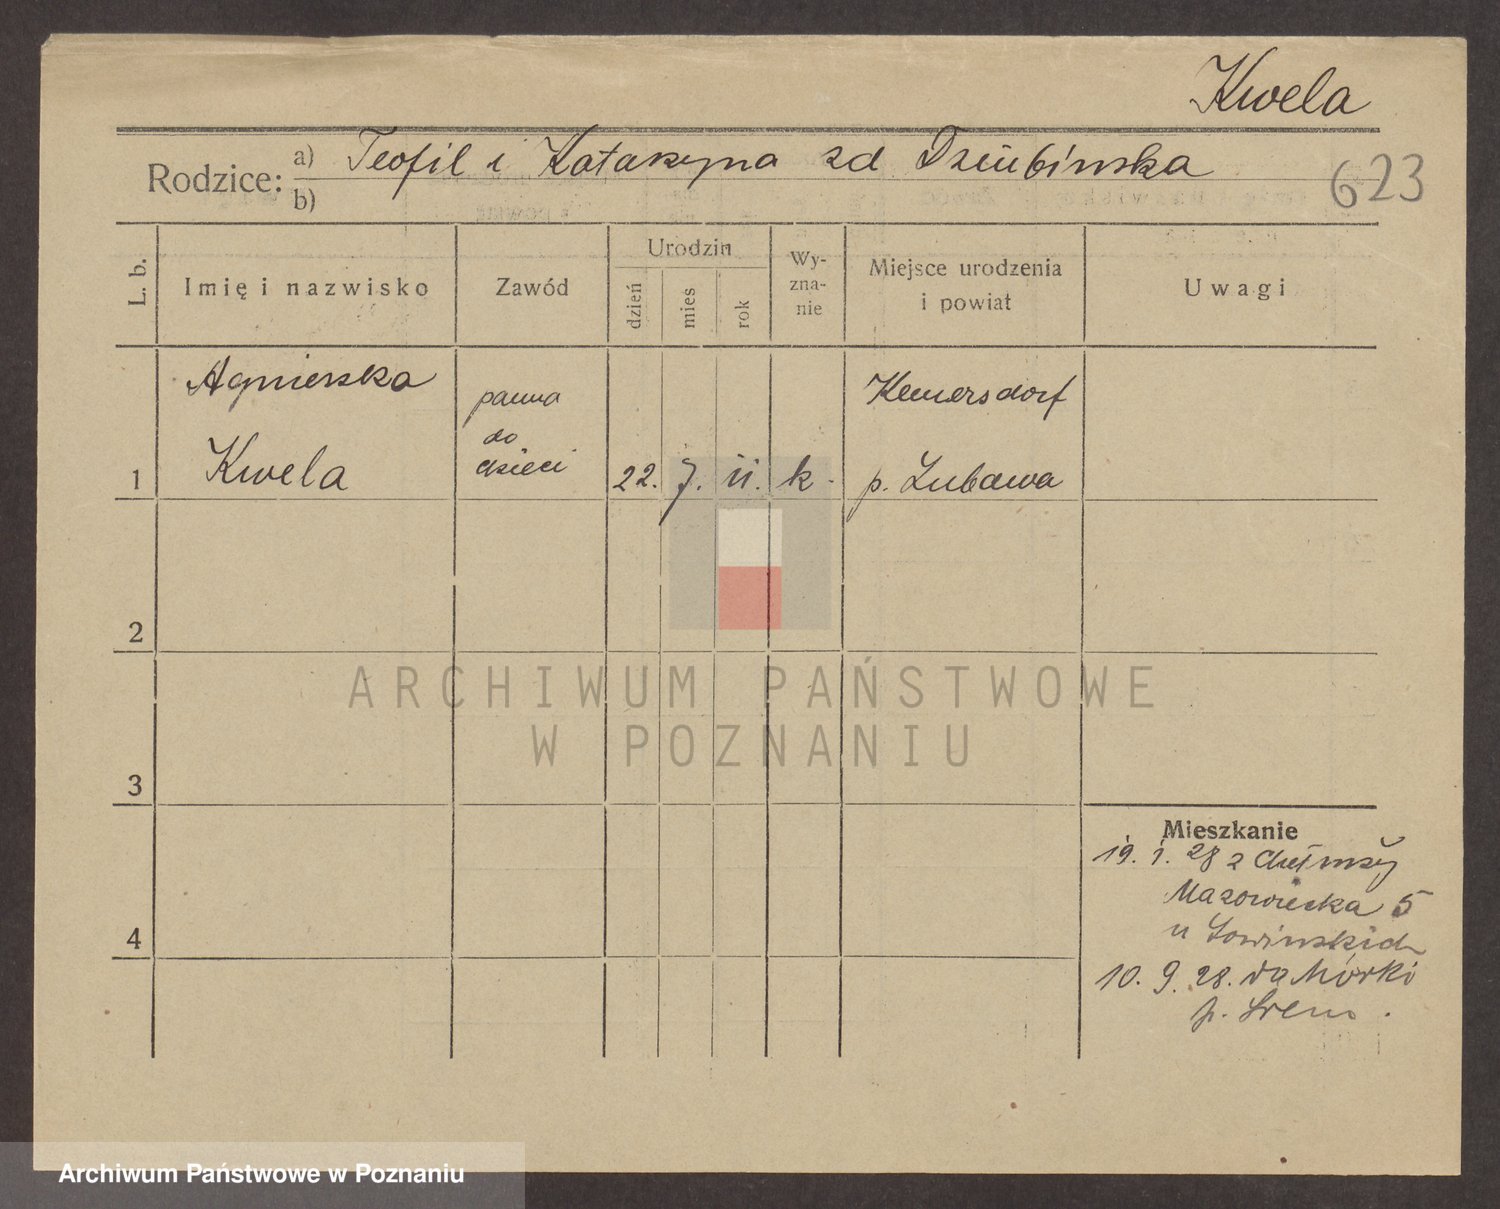 Kwela
Rodzice: a) Teofil i Katarzyna zd Dziubinska
b)
623
L. b.
Imię i nazwisko
Zawód
Urodzin
dzień
mies
rok
Wy-
zna-
nie
Miejsce urodzenia
i powiat
Uwagi
Agnieszka
Kwela
panna
do
dzieci
1
22. 7. 11. k.
p. Lubawa
2
3
4
ARCHIWUM PAŃSTWOWE
W POZNANIU
Mieszkanie
19. 1. 28 z Chełmży
Mazowiecka 5
u Łowinskich
10. 9. 28. do Mórki
p. Śrem.
Archiwum Państwowe w Poznaniu